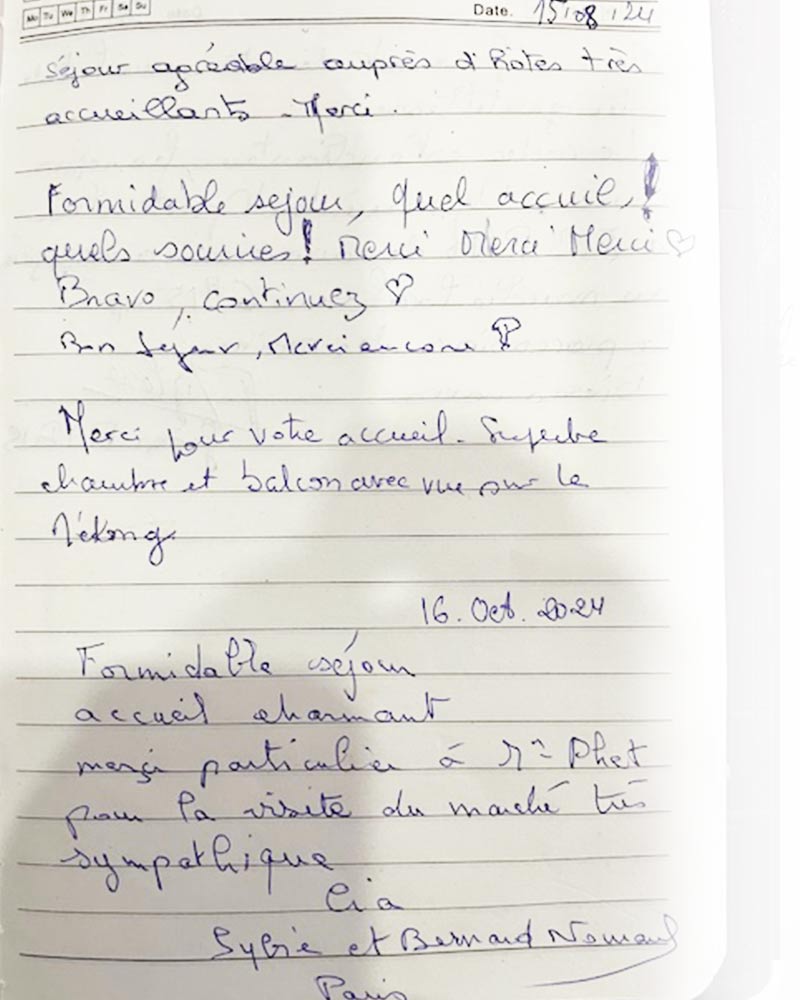 Mo Tu We Th Fr Sa Su
Date. 15/08/24
séjour agréable auprès d'hôtes très
accueillants - Merci.
Formidable sejour, quel accueil,!
quels sourires! Merci Merci Merci ♡
Bravo, continuez ♡
Bon séjour, Merci encore
Merci pour votre accueil. Superbe
chambre et balcon avec vue sur le
Mékong
16. Oct. 2024
Formidable séjour
accueil charmant
merci particulier à Phet
pour la visite du marché très
sympathique
Sylvie et Bernard
Paris